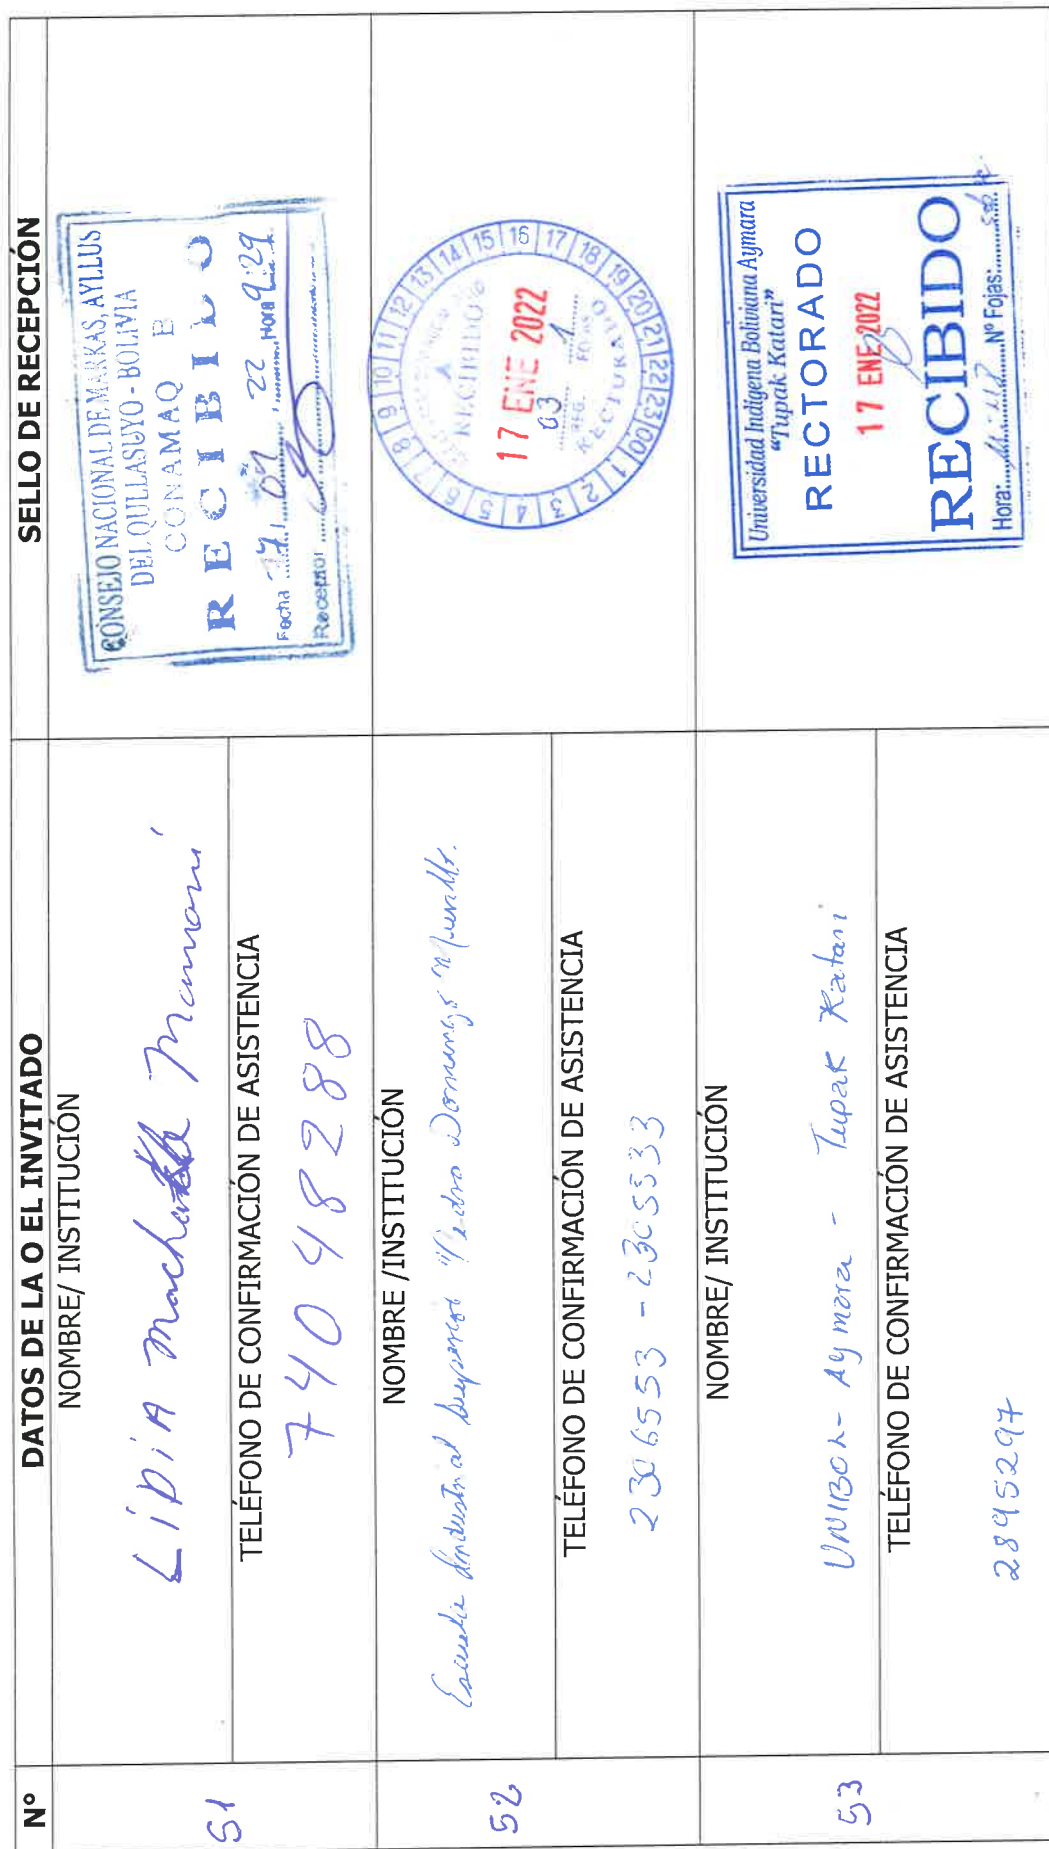 Nº
DATOS DE LA O EL INVITADO
SELLO DE RECEPCIÓN
51
NOMBRE/ INSTITUCIÓN
LiDiA Mamani
TELÉFONO DE CONFIRMACIÓN DE ASISTENCIA
74048288
CONSEJO NACIONAL DE MARKAS, AYLLUS
DEL QULLASUYO - BOLIVIA
CONAMAQ B
RECIBIDO
Fecha 22 Hora 9:29
Receptor
52
NOMBRE /INSTITUCIÓN
Escuela Industrial Superior "Pedro Domingo Murillo.
TELÉFONO DE CONFIRMACIÓN DE ASISTENCIA
2306553 - 2305533
00 1 2 3 4 5 6 7 8 9 10 11 12 13 14 15 16 17 18 19 20 21 22 23
RECIBIDO
17 ENE 2022
03 1
REG. FOJAS
RECTORADO
53
NOMBRE/ INSTITUCIÓN
UNIBOL- Aymara - Tupak Katari
TELÉFONO DE CONFIRMACIÓN DE ASISTENCIA
2895297
Universidad Indigena Boliviana Aymara
"Tupak Katari"
RECTORADO
17 ENE 2022
RECIBIDO
Hora: Nº Fojas: